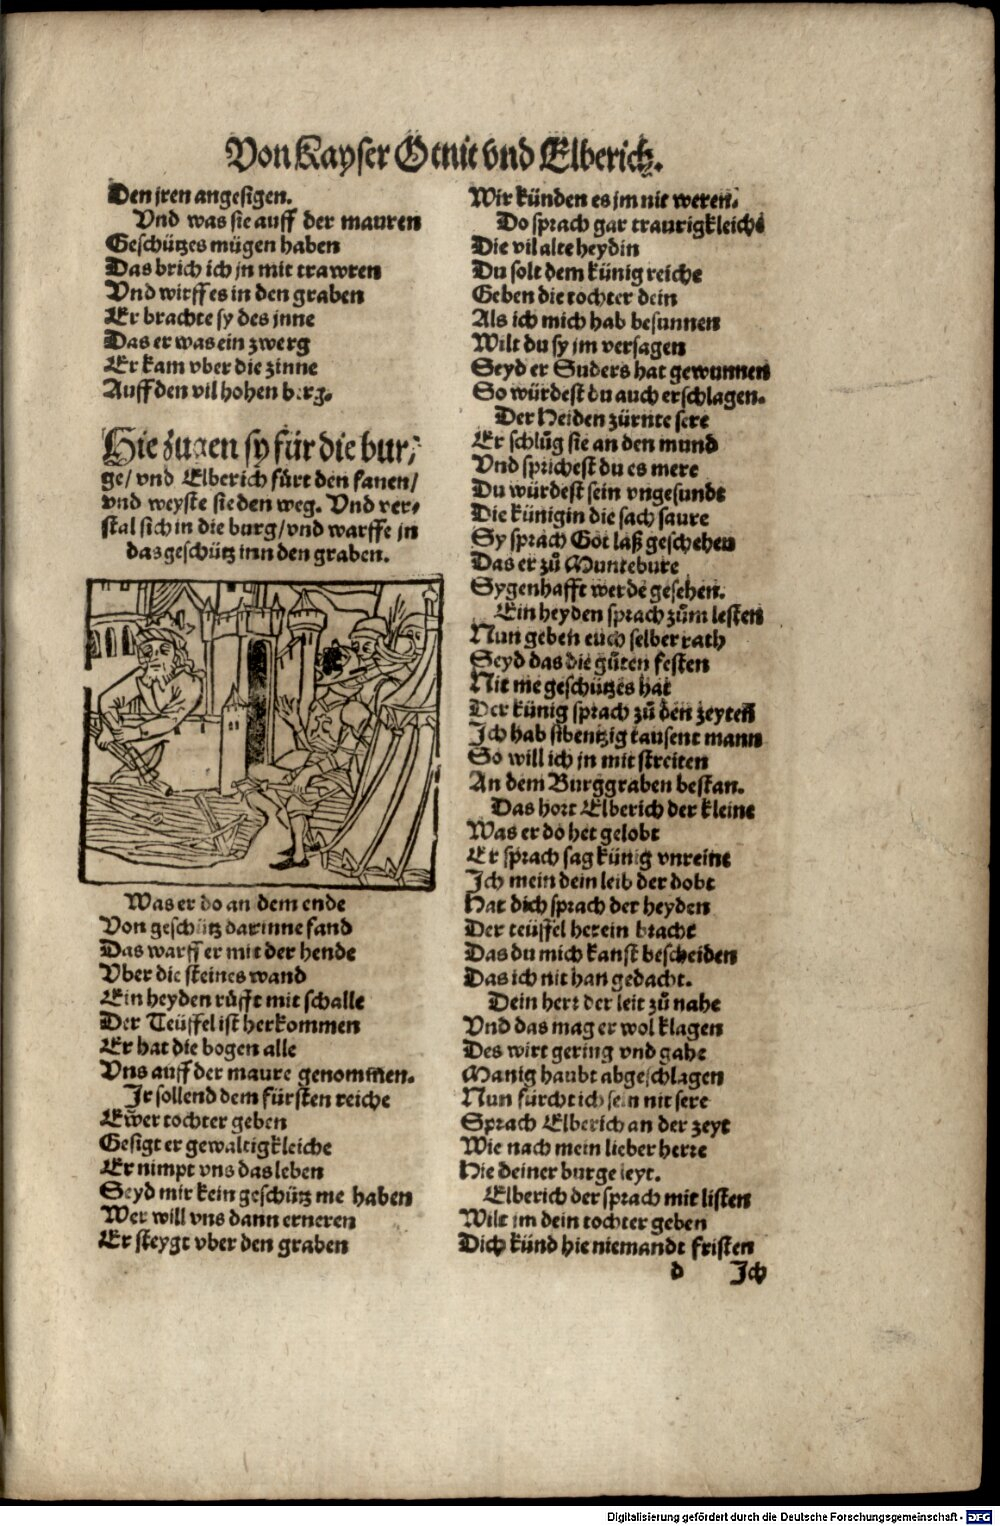 Von Kayser Otnit vnd Elberich.
Den jren angesigen.
Vnd was sie auff der mauren
Geschützes mügen haben
Das brich ich jn mit trawren
Vnd wirff es in den graben
Er brachte sy des jnne
Das er was ein zwerg
Er kam vber die zinne
Auff den vil hohen berg.
Hie zugen sy für die bur⸗
ge/ vnd Elberich fürt den fanen/
vnd weyste sie den weg. Vnd ver⸗
stal sich in die burg/ vnd warffe jn
das geschütz inn den graben.
Was er do an dem ende
Von geschütz darinne fand
Das warff er mit der hende
Vber die steines wand
Ein heyden růfft mit schalle
Der Teüffel ist herkommen
Er hat die bogen alle
Vns auff der maure genom̃en.
Jr sollend dem fürsten reiche
Ew̃er tochter geben
Gesigt er gewaltigkleiche
Er nimpt vns das leben
Seyd mir kein geschütz me haben
Wer will vns dann erneren
Er steygt vber den graben
Wir künden es jm nit weren.
Do sprach gar traurigkleiche
Die vil alte heydin
Du solt dem künig reiche
Geben die tochter dein
Als ich mich hab besunnen
Wilt du sy jm versagen
Seyd er Suders hat gewunnen
So würdest du auch erschlagen.
Der Heiden zürnte sere
Er schlůg sie an den mund
Vnd sprichest du es mere
Du würdest sein vngesundt
Die künigin die sach saure
Sy sprach Got laß geschehen
Das er zů Muntebure
Sygenhafft werde gesehen.
Ein heyden sprach zům lesten
Nun geben euch selber rath
Seyd das die gůten festen
Nit me geschützes hat
Der künig sprach zů den zeyten
Jch hab sibentzig tausent mann
So will ich jn mit streiten
An dem Burggraben bestan.
Das hort Elberich der kleine
Was er do het gelobt
Er sprach sag künig vnreine
Jch mein dein leib der dobt
Hat dich sprach der heyden
Der teüffel herein bracht
Das du mich kanst bescheiden
Das ich nit han gedacht.
Dein herr der leit zů nahe
Vnd das mag er wol klagen
Des wirt gering vnd gahe
Manig haubt abgeschlagen
Nun fürcht ich sein nit sere
Sprach Elberich an der zeyt
Wie nach mein lieber herre
Hie deiner burge leyt.
Elberich der sprach mit listen
Wilt jm dein tochter geben
Dich künd hie niemandt fristen
d Jch
Digitalisierung gefördert durch die Deutsche Forschungsgemeinschaft - DFG